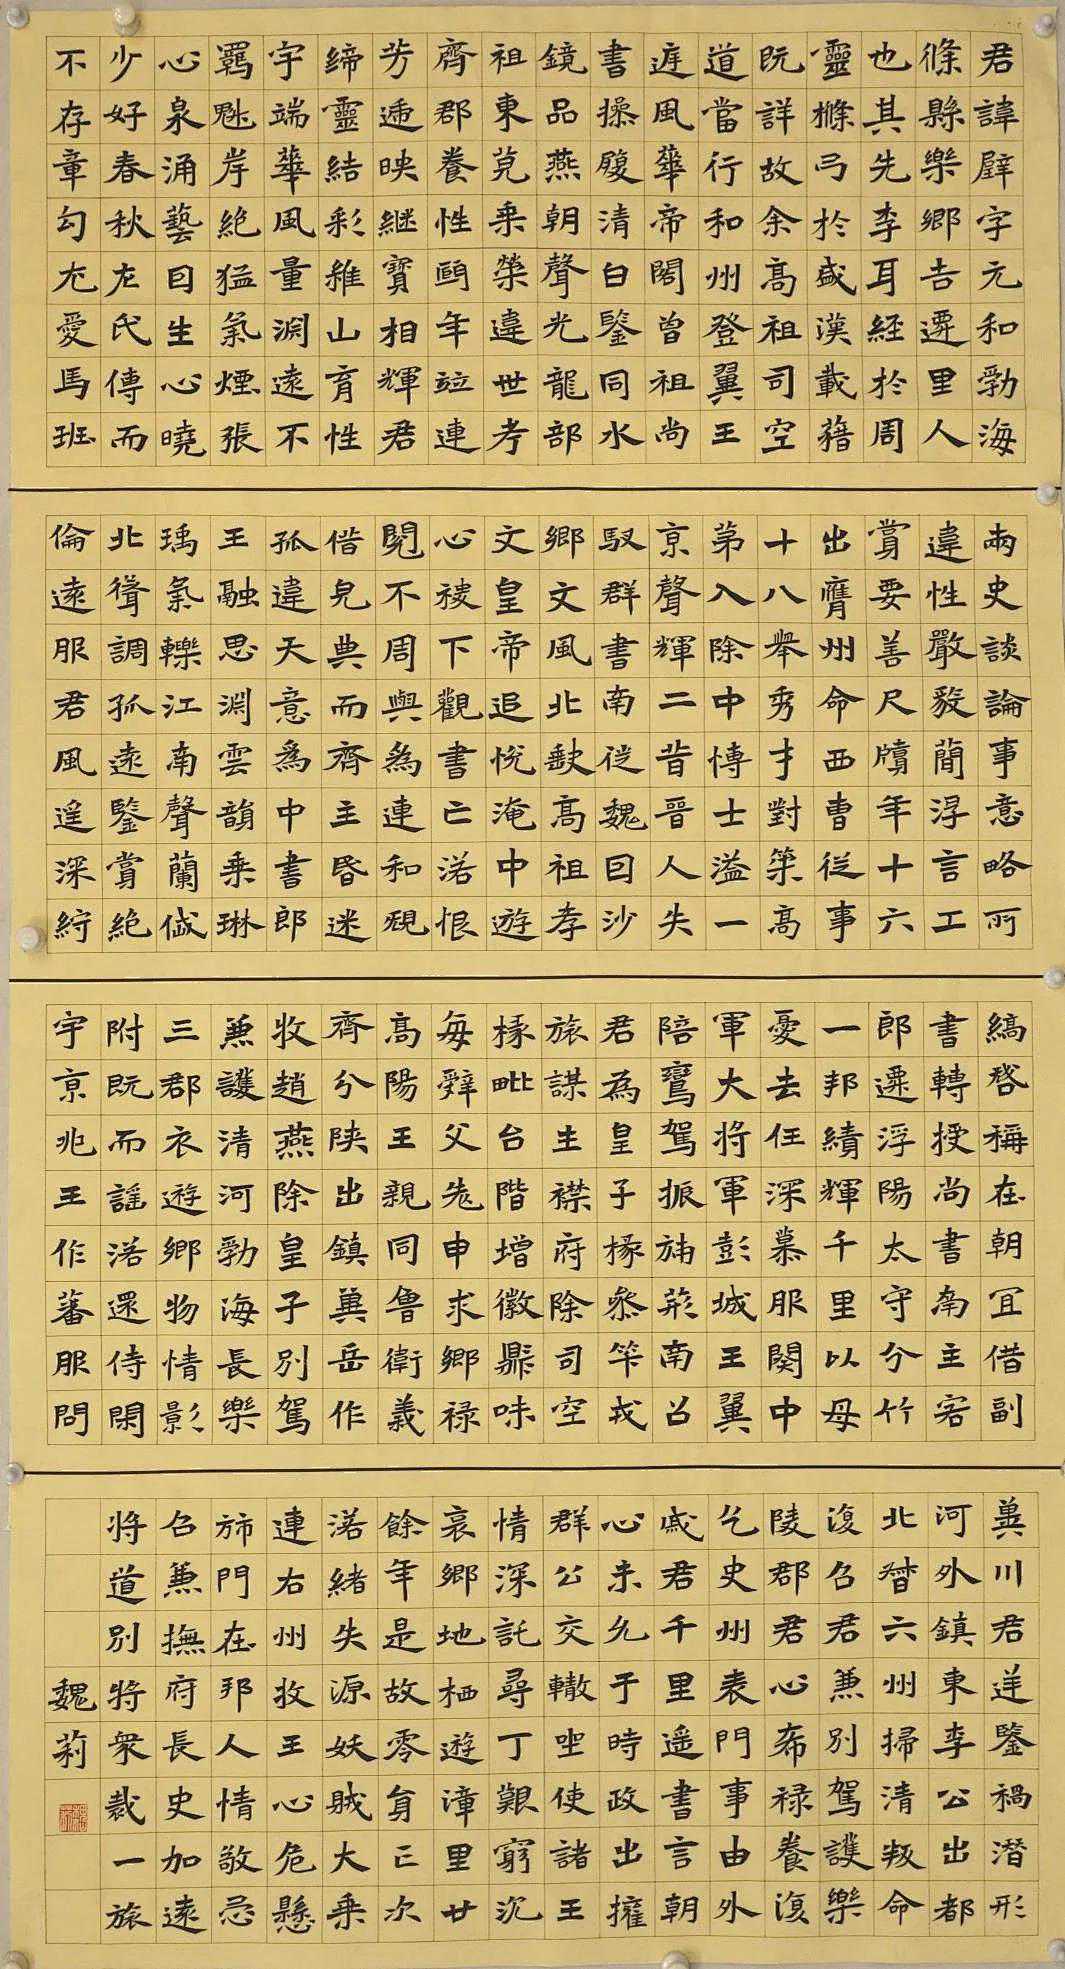 君諱璧字元和勃海
條縣樂鄉吉遷里人
也其先李耳經於周
靈弓於盛漢載籍
既詳故余高祖司空
道當行和州登翼王
遲風華帝閣曾祖尚
書操履清白鑒同水
鏡品燕朝聲光龍部
祖東莞乘榮違世考
齊郡養性頤年竝連
芳遞映継寶相輝君
締靈結彩維山育性
宇端華風量淵遠不
羈魁岸絕猛氣煙張
心泉涌藝自生心曉
少好春秋左氏傳而
不存章句尤愛馬班
兩史談論事意略所
違性嚴毅簡浮言工
賞要善尺牘年十六
出膺州命西曹從事
十八舉秀才對策高
第入除中博士溢一
京聲輝二昔晉人失
馭群書南從魏因沙
鄉文風北缺高祖孝
文皇帝追悅淹中遊
心稜下觀書亡落恨
閱不周與為連和規
借見典而齊主昏迷
孤違天意為中書郎
王融思淵雲韻乘琳
瑀氣轢江南聲蘭岱
北聳調孤遠鑒賞絕
倫遠服君風遙深紵
縞啓稱在朝宜借副
書轉授尚書南主客
郎遷浮陽太守分竹
一邦績輝千里以母
憂去任深慕服闋中
軍大將軍彭城王翼
陪鸞駕振旆荊南召
君為皇子掾參竿戎
旅謀主襟府除司空
掾毗台階增徽鼎味
每辭父老申求鄉祿
高陽王親同魯衛義
齊分陝出鎮冀岳作
牧趙燕除皇子別駕
兼護清河勃海長樂
三郡衣遊鄉物情影
附既而謠落還侍閑
宇京兆王作蕃服問
冀川君逆鑒禍潛形
河外鎮東李公出都
北督六州掃清叛命
復召君兼別駕護樂
陵郡君心希祿養復
乞史州表門事由外
戚君千里遙書言朝
心未允于時政出擁
群公交轍坐使諸王
情深託尋丁艱窮沉
哀鄉地栖遊漳里廿
餘年是故零身正次
落緒失源妖賊大乘
連右州牧王心危懸
旆門在邦人情敬忌
召兼撫府長史加遠
將道別將眾裁一旅
魏莉